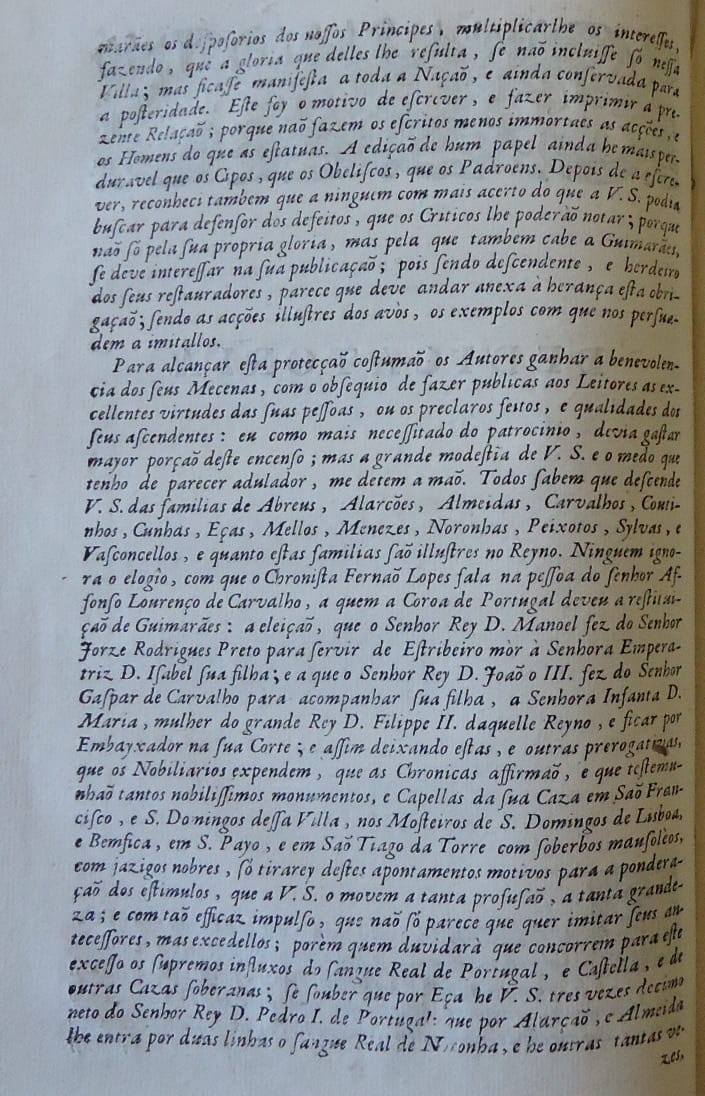 marães os dɩſpoſorios dos noſſos Principes, multiplicarlhe os intereſſes,
fazendo, que a gloria que delles lhe reſulta, ſe naõ incluiſſe ſó neſſa
Villa; mas ficaſſe manifeſta a toda a Naçaõ, e ainda conſervada para
a poſteridade. Eſte foy o motivo de eſcrever, e fazer imprimir a pre-
zente Relaçaõ; porque naõ fazem os eſcritos menos immortaes as acções, e
os Homens do que as eſtatuas. A ediçaõ de hum papel ainda he mais per-
duravel que os Cipos, que os Obeliſcos, que os Padroens. Depois de a eſcre-
ver, reconheci tambem que a ninguem com mais acerto do que a V. S. podia
buſcar para defenſor dos defeitos, que os Criticos lhe poderàõ notar; porque
naõ ſó pela ſua propria gloria, mas pela que tambem cabe a Guimarães,
ſe deve intereſſar na ſua publicaçaõ; pois ſendo deſcendente, e herdeiro
dos ſeus reſtauradores, parece que deve andar anexa à herança eſta obri-
gaçaõ; ſendo as acções illuſtres dos avòs, os exemplos com que nos perſua-
dem a imitallos.
Para alcançar eſta protecçaõ coſtumaõ os Autores ganhar a benevolen-
cia dos ſeus Mecenas, com o obſequio de fazer publicas aos Leitores as ex-
cellentes virtudes das ſuas peſſoas, ou os preclaros feitos, e qualidades dos
ſeus aſcendentes: eu como mais neceſſitado do patrocinio, devia gaſtar
mayor porçaõ deſte encenſo; mas a grande modeſtia de V. S. e o medo que
tenho de parecer adulador, me detem a maõ. Todos ſabem que deſcende
V. S. das familias de Abreus, Alarcões, Almeidas, Carvalhos, Couti-
nhos, Cunhas, Eças, Mellos, Menezes, Noronhas, Peixotos, Sylvas, e
Vaſconcellos, e quanto eſtas familias ſaõ illuſtres no Reyno. Ninguem igno-
ra o elogio, com que o Chroniſta Fernaõ Lopes fala na peſſoa do ſenhor Af-
fonſo Lourenço de Carvalho, a quem a Coroa de Portugal deveu a reſtitui-
çaõ de Guimarães: a eleiçaõ, que o Senhor Rey D. Manoel fez do Senhor
Jorze Rodrigues Preto para ſervir de Eſtribeiro mòr à Senhora Empera-
triz D. Iſabel ſua filha; e a que o Senhor Rey D. Joaõ o III. fez do Senhor
Gaſpar de Carvalho para acompanhar ſua filha, a Senhora Infanta D.
Maria, mulher do grande Rey D. Filippe II. daquelle Reyno, e ficar por
Embayxador na ſua Corte; e aſſim deixando eſtas, e outras prerogativas,
que os Nobiliarios expendem, que as Chronicas affirmaõ, e que teſtemu-
nhaõ tantos nobiliſſimos monumentos, e Capellas da ſua Caza em Saõ Fran-
ciſco, e S. Domingos deſſa Villa, nos Moſteiros de S. Domingos de Lisboa,
e Bemfica, em S. Payo, e em Saõ Tiago da Torre com ſoberbos mauſolèos,
com jazigos nobres, ſó tirarey deſtes apontamentos motivos para a pondera-
çaõ dos eſtimulos, que a V. S. o movem a tanta profuſaõ, a tanta grande-
za; e com taõ efficaz impulſo, que naõ ſó parece que quer imitar ſeus an-
teceſſores, mas excedellos; porèm quem duvidarà que concorrem para eſte
exceſſo os ſupremos influxos do ſangue Real de Portugal, e Caſtella, e de
outras Cazas ſoberanas; ſe ſouber que por Eça he V. S. tres vezes decimo
neto do Senhor Rey D. Pedro I. de Portugal: que por Alarçaõ, e Almeida
lhe entra por duas linhas o ſangue Real de Noronha, e he outras tantas ve-
zes,